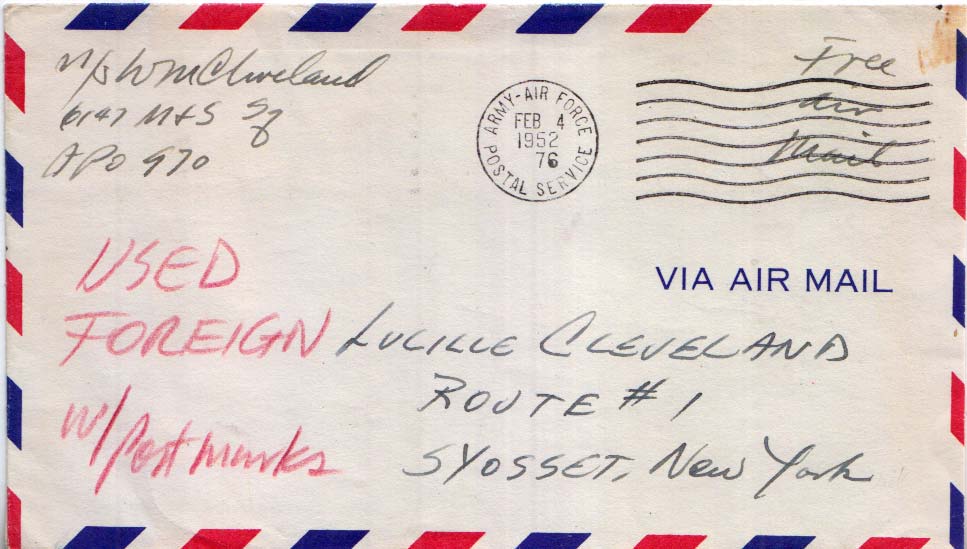 M/S WM Cleveland
6147 M+S Sq
APO 970
ARMY-AIR FORCE
POSTAL SERVICE
FEB 4
1952
76
Free
Air
Mail
VIA AIR MAIL
USED
FOREIGN
w/Postmarks
LUCILLE CLEVELAND
ROUTE # 1
SYOSSET, New York